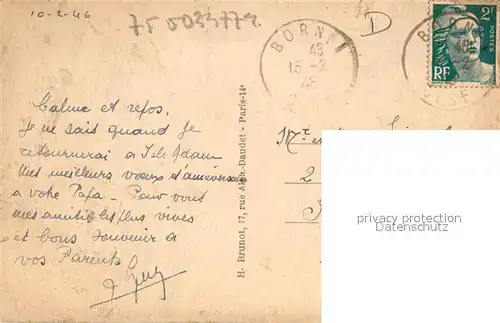 10-2-46
75 5033772
D
BORNA
45
13-2
46
2F
POSTES
RF
Calme et repos.
Je ne sais quand je
retournerai a Isle Adam
Mes meilleurs voeux d'anniversaire
a votre Papa - Pour vous
mes amitiés les plus vives
et bons souvenir a
vos Parents
H. Brunot, 17, rue Alph.-Daudet - Paris-14e
Mr et
2
privacy protection
Datenschutz